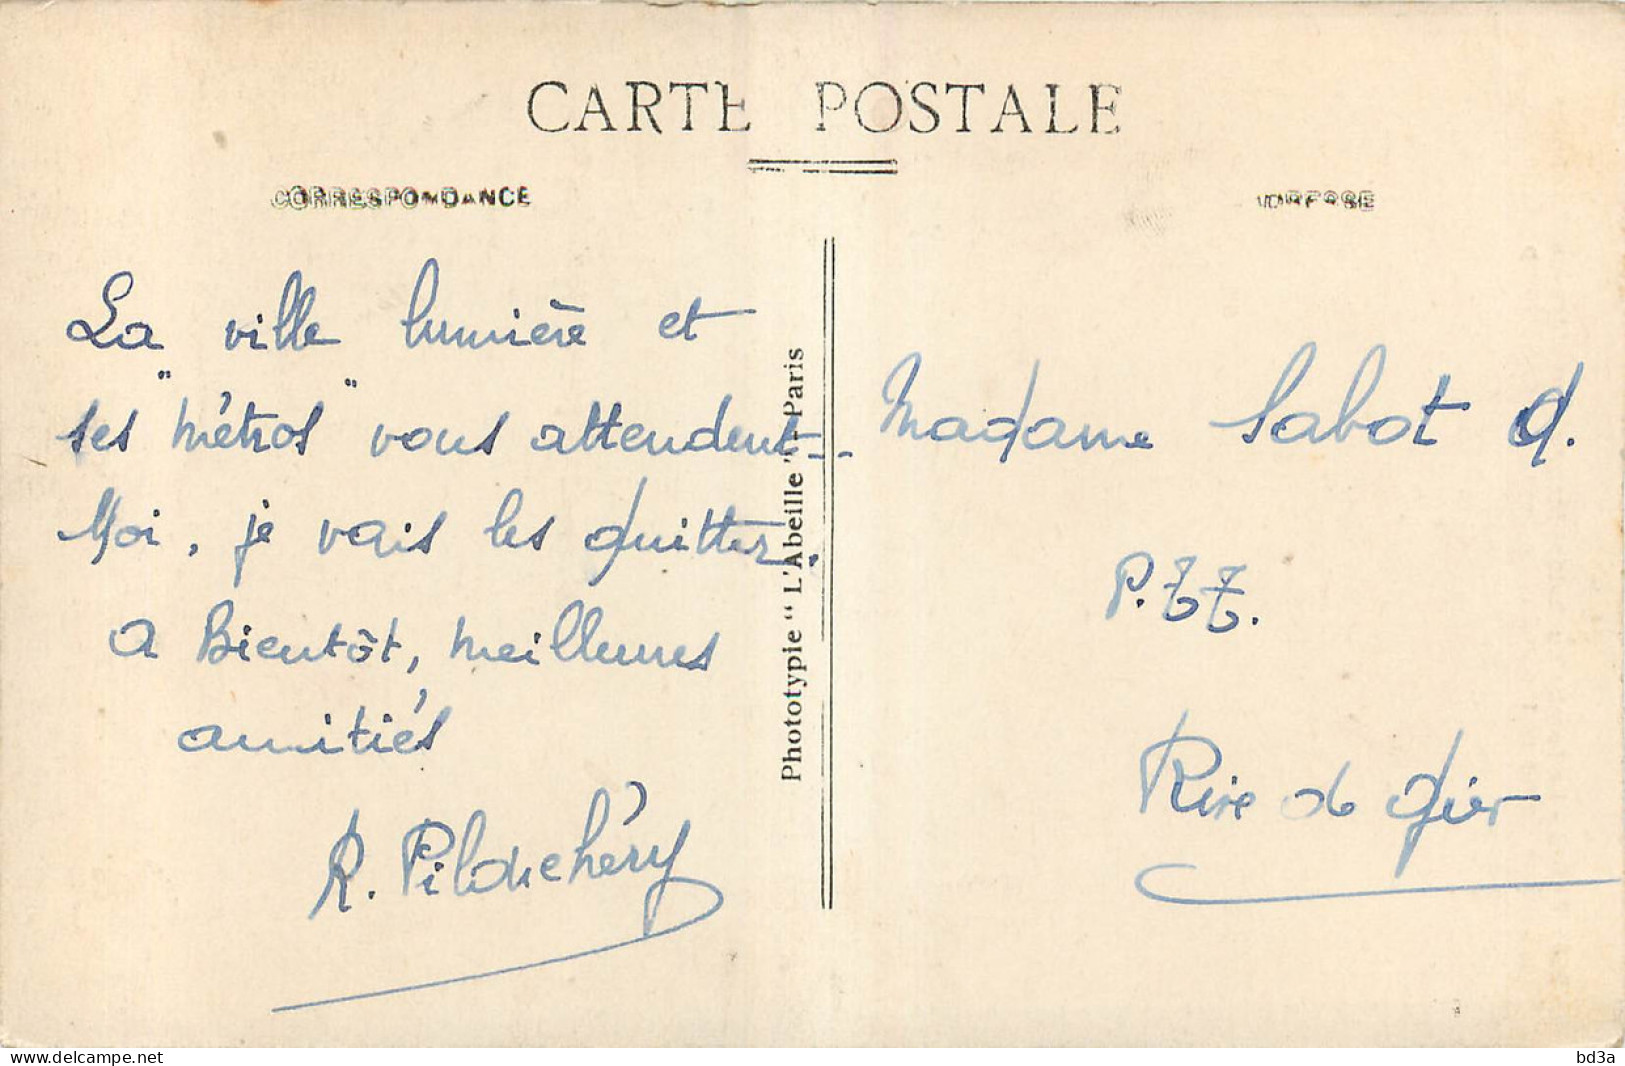 CARTE POSTALE
CORRESPONDANCE
ADRESSE
La ville lumière et
ses "métros" vous attendent...
Moi, je vais les quitter.
A Bientôt, meilleures
amitiés
R. Pildichéry
Phototypie "L'Abeille", Paris
Madame Sabot G.
P.TT.
Rive de Gier
www.delcampe.net
bd3a